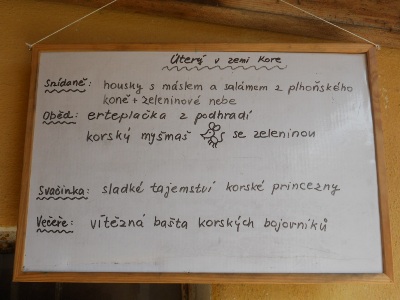 Úterý v zemi Kore
Snídaně: housky s máslem a salámem z plhoňského
koně + zeleninové nebe
Oběd: erteplačka z podhradí
korský myšmaš se zeleninou
Svačinka: sladké tajemství korské princezny
Večeře: vítězná bašta korských bojovníků